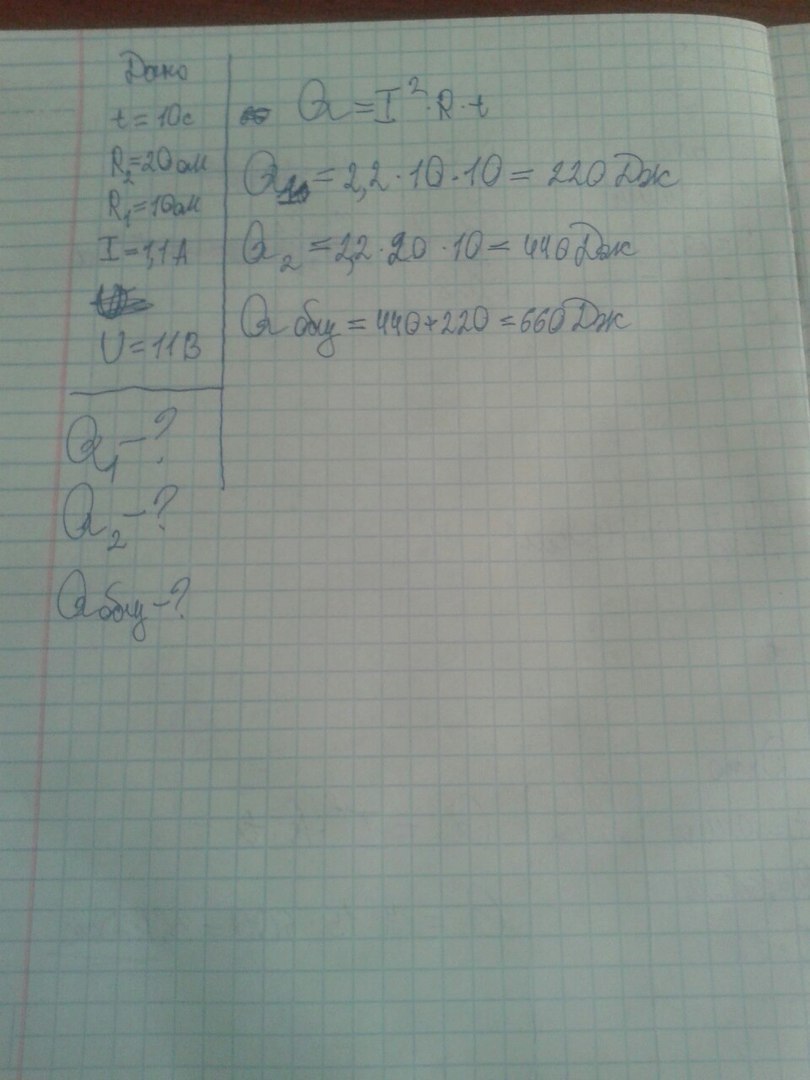 Дано
t = 10с
R₂=20ом
R₁=10ом
I=1,1А
U=11В
Q₁-?
Q₂-?
Qобщ-?
Q=I²·R·t
Q₁=2,2·10·10=220Дж
Q₂=2,2·20·10=440Дж
Qобщ=440+220=660Дж